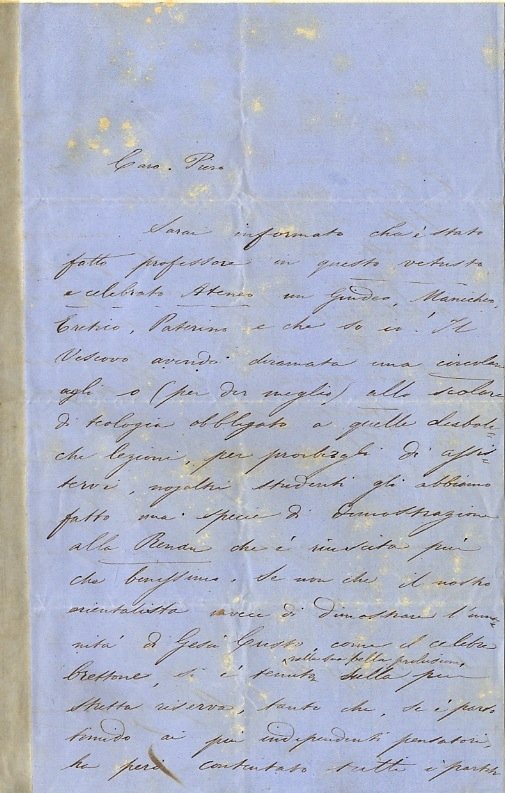 Caro Piero
Sarai informato che è stato
fatto professore in questo vetusto
e celebrato Ateneo un Giudeo, Manicheo,
Eretico, Paterino e che so io! Il
Vescovo avendo diramata una circolare
agli o (per dir meglio) allo scolare
di teologia obbligato a quelle diaboli-
che lezioni, per proibirgli di assi-
stervi, noialtri studenti gli abbiamo
fatto una specie di dimostrazione
alla Renan che è riuscita più
che benissimo. Se non che il nostro
orientalista invece di dimostrare l'uma-
nità di Gesù Cristo come il celebre
brettone, si è tenuto nella sua bella prolusione, sulla più
stretta riserva, tanto che, se è parso
timido ai più indipendenti pensatori,
ha però contentato tutti i partiti